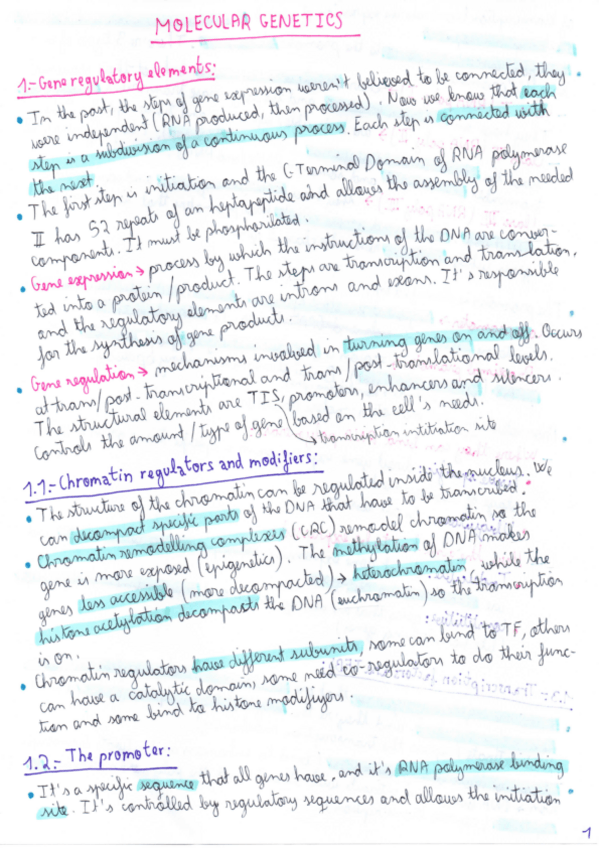 MOLECULAR GENETICS
1.- Gene regulatory elements:
• In the past, the steps of gene expression weren't believed to be connected, they
were independent (RNA produced, then processed). Now we know that each
step is a subdivision of a continuous process. Each step is connected with
the next.
• The first step is initiation and the C-Terminal Domain of RNA polymerase
II has 52 repeats of an heptapeptide and allows the assembly of the needed
components. It must be phosphorilated.
• Gene expression → process by which the instructions of the DNA are conver-
ted into a protein / product. The steps are transcription and translation,
and the regulatory elements are introns and exons. It's responsible
for the synthesis of gene products.
• Gene regulation → mechanisms involved in turning genes on and off. Occurs
at trans/post-transcriptional and trans/post-translational levels.
The structural elements are TIS, promoters, enhancers and silencers.
Controls the amount / type of gene based on the cell's needs.
→ transcription intitiation site
1.1.- Chromatin regulators and modifiers:
• The structure of the chromatin can be regulated inside the nucleus. We
can decompact specific parts of the DNA that have to be transcribed.
• Chromatin remodelling complexes (CRC) remodel chromatin so the
gene is more exposed (epigenetics). The methylation of DNA makes
genes less accessible (more decompacted) → heterochromatin, while the
histone acetylation decompacts the DNA (euchromatin) so the transcription
is on.
• Chromatin regulators have different subunits, some can bind to TF, others
can have a catalytic domain, some need co-regulators to do their func-
tion and some bind to histone modifiyers.
1.2.- The promoter:
• It's a specific sequence that all genes have, and it's RNA polymerase binding
site. It's controlled by regulatory sequences and allows the initiation
1